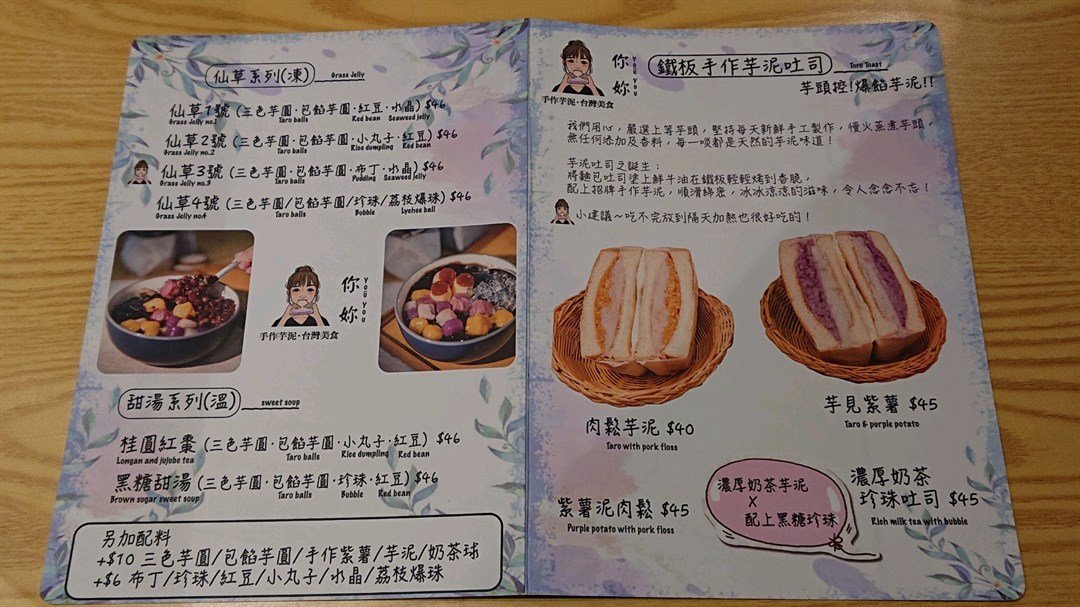 仙草系列(凍) Grass Jelly
仙草1號 (三色芋圓·包餡芋圓·紅豆·水晶) $46
Grass Jelly no.1 Taro balls Red bean Seaweed jelly
仙草2號 (三色芋圓·包餡芋圓·小丸子·紅豆) $46
Grass Jelly no.2 Taro balls Rice dumpling Red bean
仙草3號 (三色芋圓·包餡芋圓·布丁·水晶) $46
Grass Jelly no.3 Taro balls Pudding Seaweed jelly
仙草4號 (三色芋圓/包餡芋圓/珍珠/荔枝爆珠) $46
Grass Jelly no.4 Taro balls Bubble Lychee ball
你妳
YOU YOU
手作芋泥·台灣美食
甜湯系列(溫) sweet soup
桂圓紅棗 (三色芋圓·包餡芋圓·小丸子·紅豆) $46
Longan and jujube tea Taro balls Rice dumpling Red bean
黑糖甜湯 (三色芋圓·包餡芋圓·珍珠·紅豆) $46
Brown sugar sweet soup Taro balls Bubble Red bean
另加配料
+$10 三色芋圓/包餡芋圓/手作紫薯/芋泥/奶茶球
+$6 布丁/珍珠/紅豆/小丸子/水晶/荔枝爆珠
你妳
YOU YOU
手作芋泥·台灣美食
鐵板手作芋泥吐司 Taro Toast
芋頭控!爆餡芋泥!!
我們用心，嚴選上等芋頭，堅持每天新鮮手工製作，慢火蒸煮芋頭，
無任何添加及香料，每一啖都是天然的芋泥味道！
芋泥吐司之誕生：
將麵包吐司塗上鮮牛油在鐵板輕輕烤到香脆，
配上招牌手作芋泥，順滑綿密，冰冰涼涼的滋味，令人念念不忘！
小建議~吃不完放到隔天加熱也很好吃的！
肉鬆芋泥 $40
Taro with pork floss
芋見紫薯 $45
Taro & purple potato
紫薯泥肉鬆 $45
Purple potato with pork floss
濃厚奶茶芋泥
X
配上黑糖珍珠
濃厚奶茶
珍珠吐司 $45
Rich milk tea with bubble